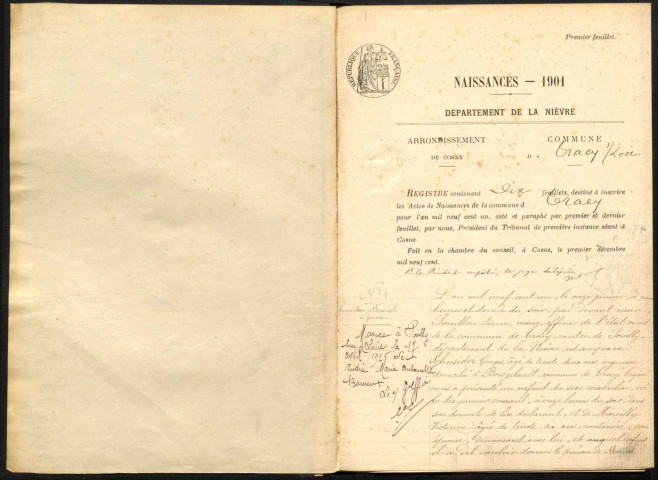 Premier feuillet.
RÉPUBLIQUE FRANÇAISE
NAISSANCES — 1901
DÉPARTEMENT DE LA NIÈVRE
ARRONDISSEMENT
DE COSNE
COMMUNE
D e Tracy s/Loire
REGISTRE contenant Dix feuillets, destiné à inscrire
les Actes de Naissances de la commune d Tracy
pour l'an mil neuf cent un, coté et paraphé par premier et dernier
feuillet, par nous, Président du Tribunal de première instance séant à
Cosne.
Fait en la chambre du conseil, à Cosne, le premier décembre
mil neuf cent.
Pr le Président empêché, un juge délégué,
No 1
Marcel
Marié à Pouilly
sur Loire le 17
avril 1925 avec
Marie
L'an mil neuf cent un, le onze janvier, à
heures et demie du soir, par devant nous
maire, officier de l'état civil
de la commune de Tracy, canton de Pouilly,
département de la Nièvre, est comparu
âgé de trente deux ans, vigneron
demeurant à commune de Tracy, lequel
nous a présenté un enfant du sexe masculin, né
le dix janvier courant, à onze heures du soir, dans
son domicile, de lui déclarant, et de
Victorine âgée de trente six ans, couturière, son
épouse, demeurant avec lui, et auquel enfant
il a dit vouloir donner le prénom de Marcel